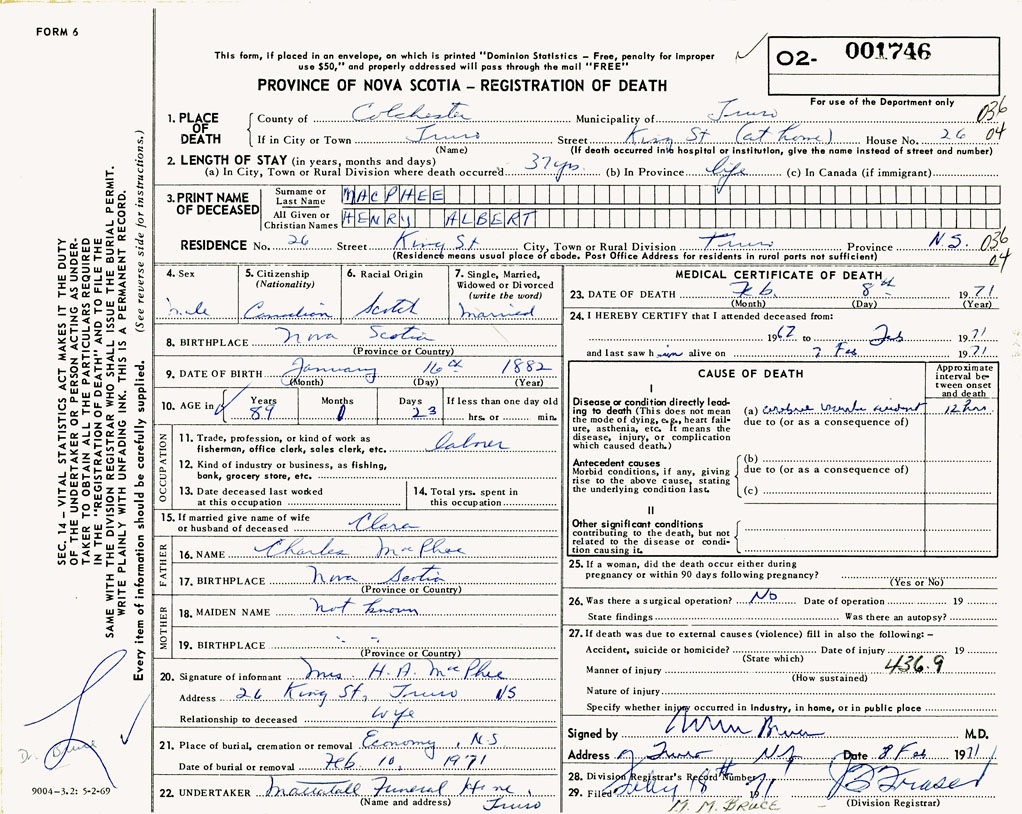 FORM 6
This form, if placed in an envelope, on which is printed "Dominion Statistics – Free, penalty for improper
use $50," and properly addressed will pass through the mail "FREE"
PROVINCE OF NOVA SCOTIA – REGISTRATION OF DEATH
O2- 001746
For use of the Department only
036
04
1. PLACE OF DEATH
County of Colchester Municipality of Truro
If in City or Town Truro Street King St (at home) House No. 26
(Name) (If death occurred into hospital or institution, give the name instead of street and number)
2. LENGTH OF STAY (in years, months and days)
(a) In City, Town or Rural Division where death occurred 37 yrs. (b) In Province life (c) In Canada (if immigrant)
3. PRINT NAME OF DECEASED
Surname or Last Name MACPHEE
All Given or Christian Names HENRY ALBERT
RESIDENCE No. 26 Street King St City, Town or Rural Division Truro Province N.S. 036
(Residence means usual place of abode. Post Office Address for residents in rural ports not sufficient) 04
4. Sex Male
5. Citizenship (Nationality) Canadian
6. Racial Origin Scotch
7. Single, Married, Widowed or Divorced (write the word) Married
8. BIRTHPLACE Nova Scotia
(Province or Country)
9. DATE OF BIRTH January 16th 1882
(Month) (Day) (Year)
10. AGE in Years 89 Months 0 Days 23 If less than one day old
hrs. or min.
OCCUPATION
11. Trade, profession, or kind of work as
fisherman, office clerk, sales clerk, etc. Labrer
12. Kind of industry or business, as fishing,
bank, grocery store, etc.
13. Date deceased last worked
at this occupation
14. Total yrs. spent in
this occupation
15. If married give name of wife
or husband of deceased Clara
FATHER
16. NAME Charles MacPhee
17. BIRTHPLACE Nova Scotia
(Province or Country)
MOTHER
18. MAIDEN NAME Not known
19. BIRTHPLACE - -
(Province or Country)
20. Signature of informant Mrs. H. A. MacPhee
Address 26 King St, Truro NS
Relationship to deceased Wife
21. Place of burial, cremation or removal Economy, N.S
Date of burial or removal Feb 10, 1971
22. UNDERTAKER Mattatall Funeral Home,
(Name and address) Truro
MEDICAL CERTIFICATE OF DEATH
23. DATE OF DEATH Feb. 8th 1971
(Month) (Day) (Year)
24. I HEREBY CERTIFY that I attended deceased from:
1967 to Feb 1971
and last saw him alive on 7 Feb 1971
CAUSE OF DEATH
Approximate interval between onset and death
I
Disease or condition directly leading to death (This does not mean the mode of dying, e.g., heart failure, asthenia, etc. It means the disease, injury, or complication which caused death.)
(a) cerebral vascular accident 12 hrs.
due to (or as a consequence of)
Antecedent causes
Morbid conditions, if any, giving rise to the above cause, stating the underlying condition last.
(b)
due to (or as a consequence of)
(c)
II
Other significant conditions
contributing to the death, but not related to the disease or condition causing it.
25. If a woman, did the death occur either during
pregnancy or within 90 days following pregnancy?
(Yes or No)
26. Was there a surgical operation? No Date of operation 19
State findings Was there an autopsy?
27. If death was due to external causes (violence) fill in also the following: –
Accident, suicide or homicide? Date of injury 19
(State which)
Manner of injury 436.9
(How sustained)
Nature of injury
Specify whether injury occurred in industry, in home, or in public place
Signed by Bruce M.D.
Address Truro NS Date 8 Feb 1971
28. Division Registrar's Record Number
29. Filed 18th 1971
(Division Registrar) Fraser
M. M. BRUCE
SEC. 14 – VITAL STATISTICS ACT MAKES IT THE DUTY
OF THE UNDERTAKER OR PERSON ACTING AS UNDER-
TAKER TO OBTAIN ALL THE PARTICULARS REQUIRED
IN THE "REGISTRATION OF DEATH" AND TO FILE THE
SAME WITH THE DIVISION REGISTRAR WHO SHALL ISSUE THE BURIAL PERMIT.
WRITE PLAINLY WITH UNFADING INK. THIS IS A PERMANENT RECORD.
Every item of information should be carefully supplied. (See reverse side for instructions.)
Dr. Bruce
9004-3.2: 5-2-69